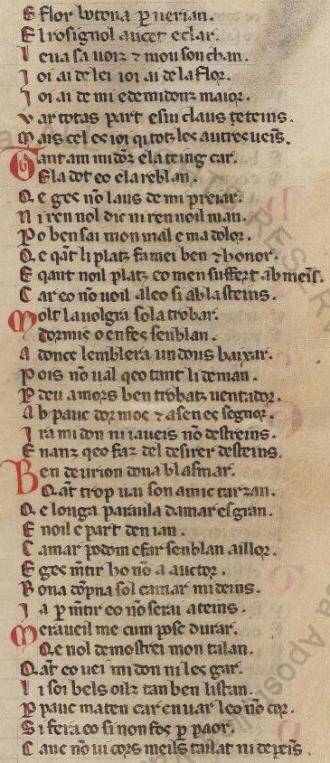 E flor botona p uerian.
E l rosignol aucet e clar.
L eua sa uoiz ⁊ mou son chan.
I oi ai de lei ioi ai de la flor.
I oi ai de mi e de midonz maior.
V ar totas part e sui claus e teins.
M ais cel es ioi qi totz les autres ueis.
Tant am midōz e la teing car.
E la dot eo e la reblan.
Q e ges nō laus de mi preiar.
N i ren nol dic ni ren noil man.
P o ben sai mon mal e ma dolor.
Q e qāt li platz fa mei ben ⁊ honor.
E qant noil platz eo men suffert ab meīs.
C ar eo nō uoil alc o si ab lasteins.
Molt la uolgra sola trobar.
dormis o en fes senblan.
A donc e lemblera un dous baixar.
P ois nō ual qeo tant li deman.
P deu amors ben trobatz uentador.
A b pauc dormoc ⁊ asen es segnor.
I ra midon ni iaueis nō destreins.
E nanz qeo faz del desirer desteins.
Ben deurion dona blasmar.
Qāt trop uai son amic tarzan.
Q e longa paraula damar es gran.
E noil e part den ian.
C amar podom e far senblan aillor.
E ges mētir ho nō a auctor.
B ona dōpna sol camar mi deins.
I a p mētir eo nō serai ateins.
Meraueil me cum posc durar.
Qe nol demostrei mon talan.
Qāt eo uei midon ni les gar.
L i soi bels oilz tan ben listan.
P pauc maten car en uar leo nō cor.
S i fera eo si non fos p paor.
C anc nō ui cors meils tailat ni depeīs.